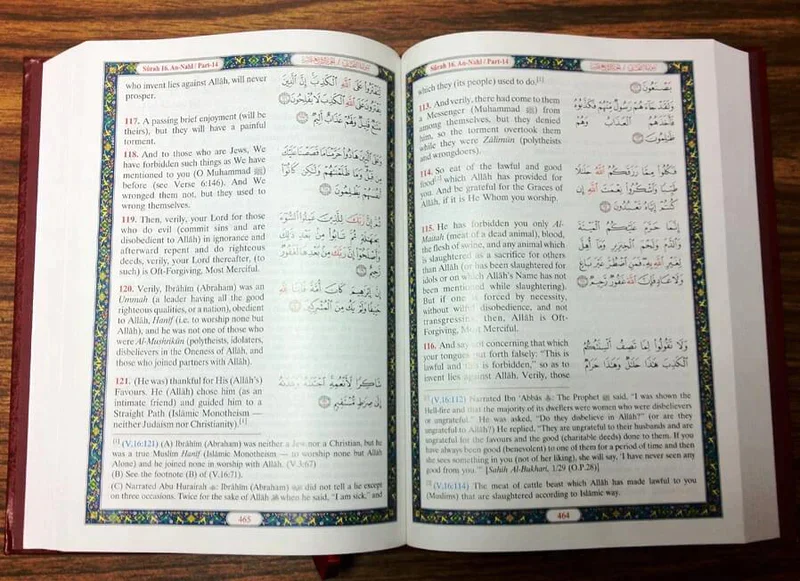 Sûrah 16. An-Nahl / Part-14
which they (its people) used to do.[1]
يَصْنَعُونَ
113. And verily, there had come to them
a Messenger (Muhammad ﷺ) from
among themselves, but they denied
him, so the torment overtook them
while they were Zâlimûn (polytheists
and wrongdoers).
وَلَقَدْ جَاءَهُمْ رَسُولٌ مِنْهُمْ فَكَذَّبُوهُ
فَأَخَذَهُمُ الْعَذَابُ وَهُمْ
ظَالِمُونَ
114. So eat of the lawful and good
food[2] which Allâh has provided for
you. And be grateful for the Graces of
Allâh, if it is He Whom you worship.
فَكُلُوا مِمَّا رَزَقَكُمُ اللَّهُ حَلَالًا
طَيِّبًا وَاشْكُرُوا نِعْمَتَ اللَّهِ إِنْ
كُنْتُمْ إِيَّاهُ تَعْبُدُونَ
115. He has forbidden you only Al-
Maitah (meat of a dead animal), blood,
the flesh of swine, and any animal which
is slaughtered as a sacrifice for others
than Allâh (or has been slaughtered for
idols or on which Allâh's Name has not
been mentioned while slaughtering).
But if one is forced by necessity,
without wilful disobedience, and not
transgressing, then, Allâh is Oft-
Forgiving, Most Merciful.
إِنَّمَا حَرَّمَ عَلَيْكُمُ الْمَيْتَةَ
وَالدَّمَ وَلَحْمَ الْخِنْزِيرِ وَمَا أُهِلَّ
لِغَيْرِ اللَّهِ بِهِ فَمَنِ اضْطُرَّ غَيْرَ بَاغٍ
وَلَا عَادٍ فَإِنَّ اللَّهَ غَفُورٌ رَحِيمٌ
116. And say not concerning that which
your tongues put forth falsely: "This is
lawful and this is forbidden," so as to
invent lies against Allâh. Verily, those
وَلَا تَقُولُوا لِمَا تَصِفُ أَلْسِنَتُكُمُ
الْكَذِبَ هَذَا حَلَالٌ وَهَذَا حَرَامٌ
[1] (V.16:112) Narrated Ibn 'Abbâs: The Prophet ﷺ said, "I was shown the
Hell-fire and that the majority of its dwellers were women who were disbelievers
or ungrateful." He was asked, "Do they disbelieve in Allâh?" (or are they
ungrateful to Allâh?) He replied, "They are ungrateful to their husbands and are
ungrateful for the favours and the good (charitable deeds) done to them. If you
have always been good (benevolent) to one of them for a period of time and then
she sees something in you (not of her liking), she will say, 'I have never seen any
good from you.'" [Sahih Al-Bukhari, 1/29 (O.P.28)]
[2] (V.16:114) The meat of cattle beast which Allâh has made lawful to you
(Muslims) that are slaughtered according to Islâmic way.
464
Sûrah 16. An-Nahl / Part-14
who invent lies against Allâh, will never
prosper.
لِتَفْتَرُوا عَلَى اللَّهِ الْكَذِبَ إِنَّ الَّذِينَ
يَفْتَرُونَ عَلَى اللَّهِ الْكَذِبَ لَا يُفْلِحُونَ
117. A passing brief enjoyment (will be
theirs), but they will have a painful
torment.
مَتَاعٌ قَلِيلٌ وَلَهُمْ عَذَابٌ أَلِيمٌ
118. And to those who are Jews, We
have forbidden such things as We have
mentioned to you (O Muhammad ﷺ)
before (see Verse 6:146). And We
wronged them not, but they used to
wrong themselves.
وَعَلَى الَّذِينَ هَادُوا حَرَّمْنَا مَا قَصَصْنَا عَلَيْكَ
مِنْ قَبْلُ وَمَا ظَلَمْنَاهُمْ وَلَكِنْ كَانُوا
أَنْفُسَهُمْ يَظْلِمُونَ
119. Then, verily, your Lord for those
who do evil (commit sins and are
disobedient to Allâh) in ignorance and
afterward repent and do righteous
deeds, verily, your Lord thereafter, (to
such) is Oft-Forgiving, Most Merciful.
ثُمَّ إِنَّ رَبَّكَ لِلَّذِينَ عَمِلُوا السُّوءَ
بِجَهَالَةٍ ثُمَّ تَابُوا مِنْ بَعْدِ ذَلِكَ
وَأَصْلَحُوا إِنَّ رَبَّكَ مِنْ بَعْدِهَا لَغَفُورٌ
رَحِيمٌ
120. Verily, Ibrâhîm (Abraham) was an
Ummah (a leader having all the good
righteous qualities, or a nation), obedient
to Allâh, Hanîf (i.e. to worship none but
Allâh), and he was not one of those who
were Al-Mushrikûn (polytheists, idolaters,
disbelievers in the Oneness of Allâh, and
those who joined partners with Allâh).
إِنَّ إِبْرَاهِيمَ كَانَ أُمَّةً قَانِتًا لِلَّهِ
حَنِيفًا وَلَمْ يَكُ مِنَ الْمُشْرِكِينَ
121. (He was) thankful for His (Allâh's)
Favours. He (Allâh) chose him (as an
intimate friend) and guided him to a
Straight Path (Islâmic Monotheism —
neither Judaism nor Christianity).[1]
شَاكِرًا لِأَنْعُمِهِ اجْتَبَاهُ وَهَدَاهُ
إِلَى صِرَاطٍ مُسْتَقِيمٍ
[1] (V.16:121) (A) Ibrâhîm (Abraham) was neither a Jew nor a Christian, but he
was a true Muslim Hanîf (Islâmic Monotheism — to worship none but Allah
Alone) and he joined none in worship with Allâh. (V.3:67)
(B) See the footnote of (V.16:71).
(C) Narrated Abu Hurairah: Ibrâhîm (Abraham) did not tell a lie except
on three occasions. Twice for the sake of Allâh when he said, "I am sick," and
465